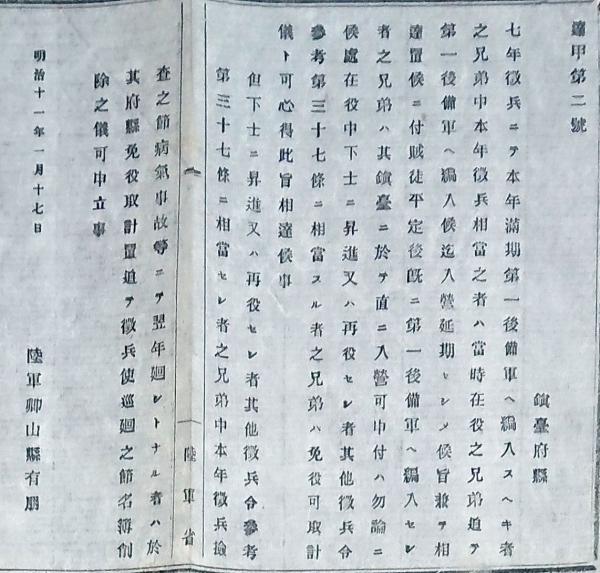 達甲第二號
鎭臺府縣
七年徵兵ニテ本年滿期第一後備軍ヘ編入スヘキ者
之兄弟中本年徵兵相當之者ハ當時在役之兄弟追テ
第一後備軍ヘ編入候迄入營延期セシメ候旨兼テ相
達置候ニ付賊徒平定後既ニ第一後備軍ヘ編入セシ
者之兄弟ハ其鎭臺ニ於テ直ニ入營可申付ハ勿論ニ
候處在役中下士ニ昇進又ハ再役セシ者其他徵兵令
參考第三十七條ニ相當スル者之兄弟ハ免役可取計
儀ト可心得此旨相達候事
但下士ニ昇進又ハ再役セシ者其他徵兵令參考
第三十七條ニ相當セシ者之兄弟中本年徵兵撿
陸軍省
査之節病氣事故等ニテ翌年廻シトナル者ハ於
其府縣免役取計置追テ徵兵使巡廻之節名簿削
除之儀可申立事
明治十一年一月十七日
陸軍卿山縣有朋